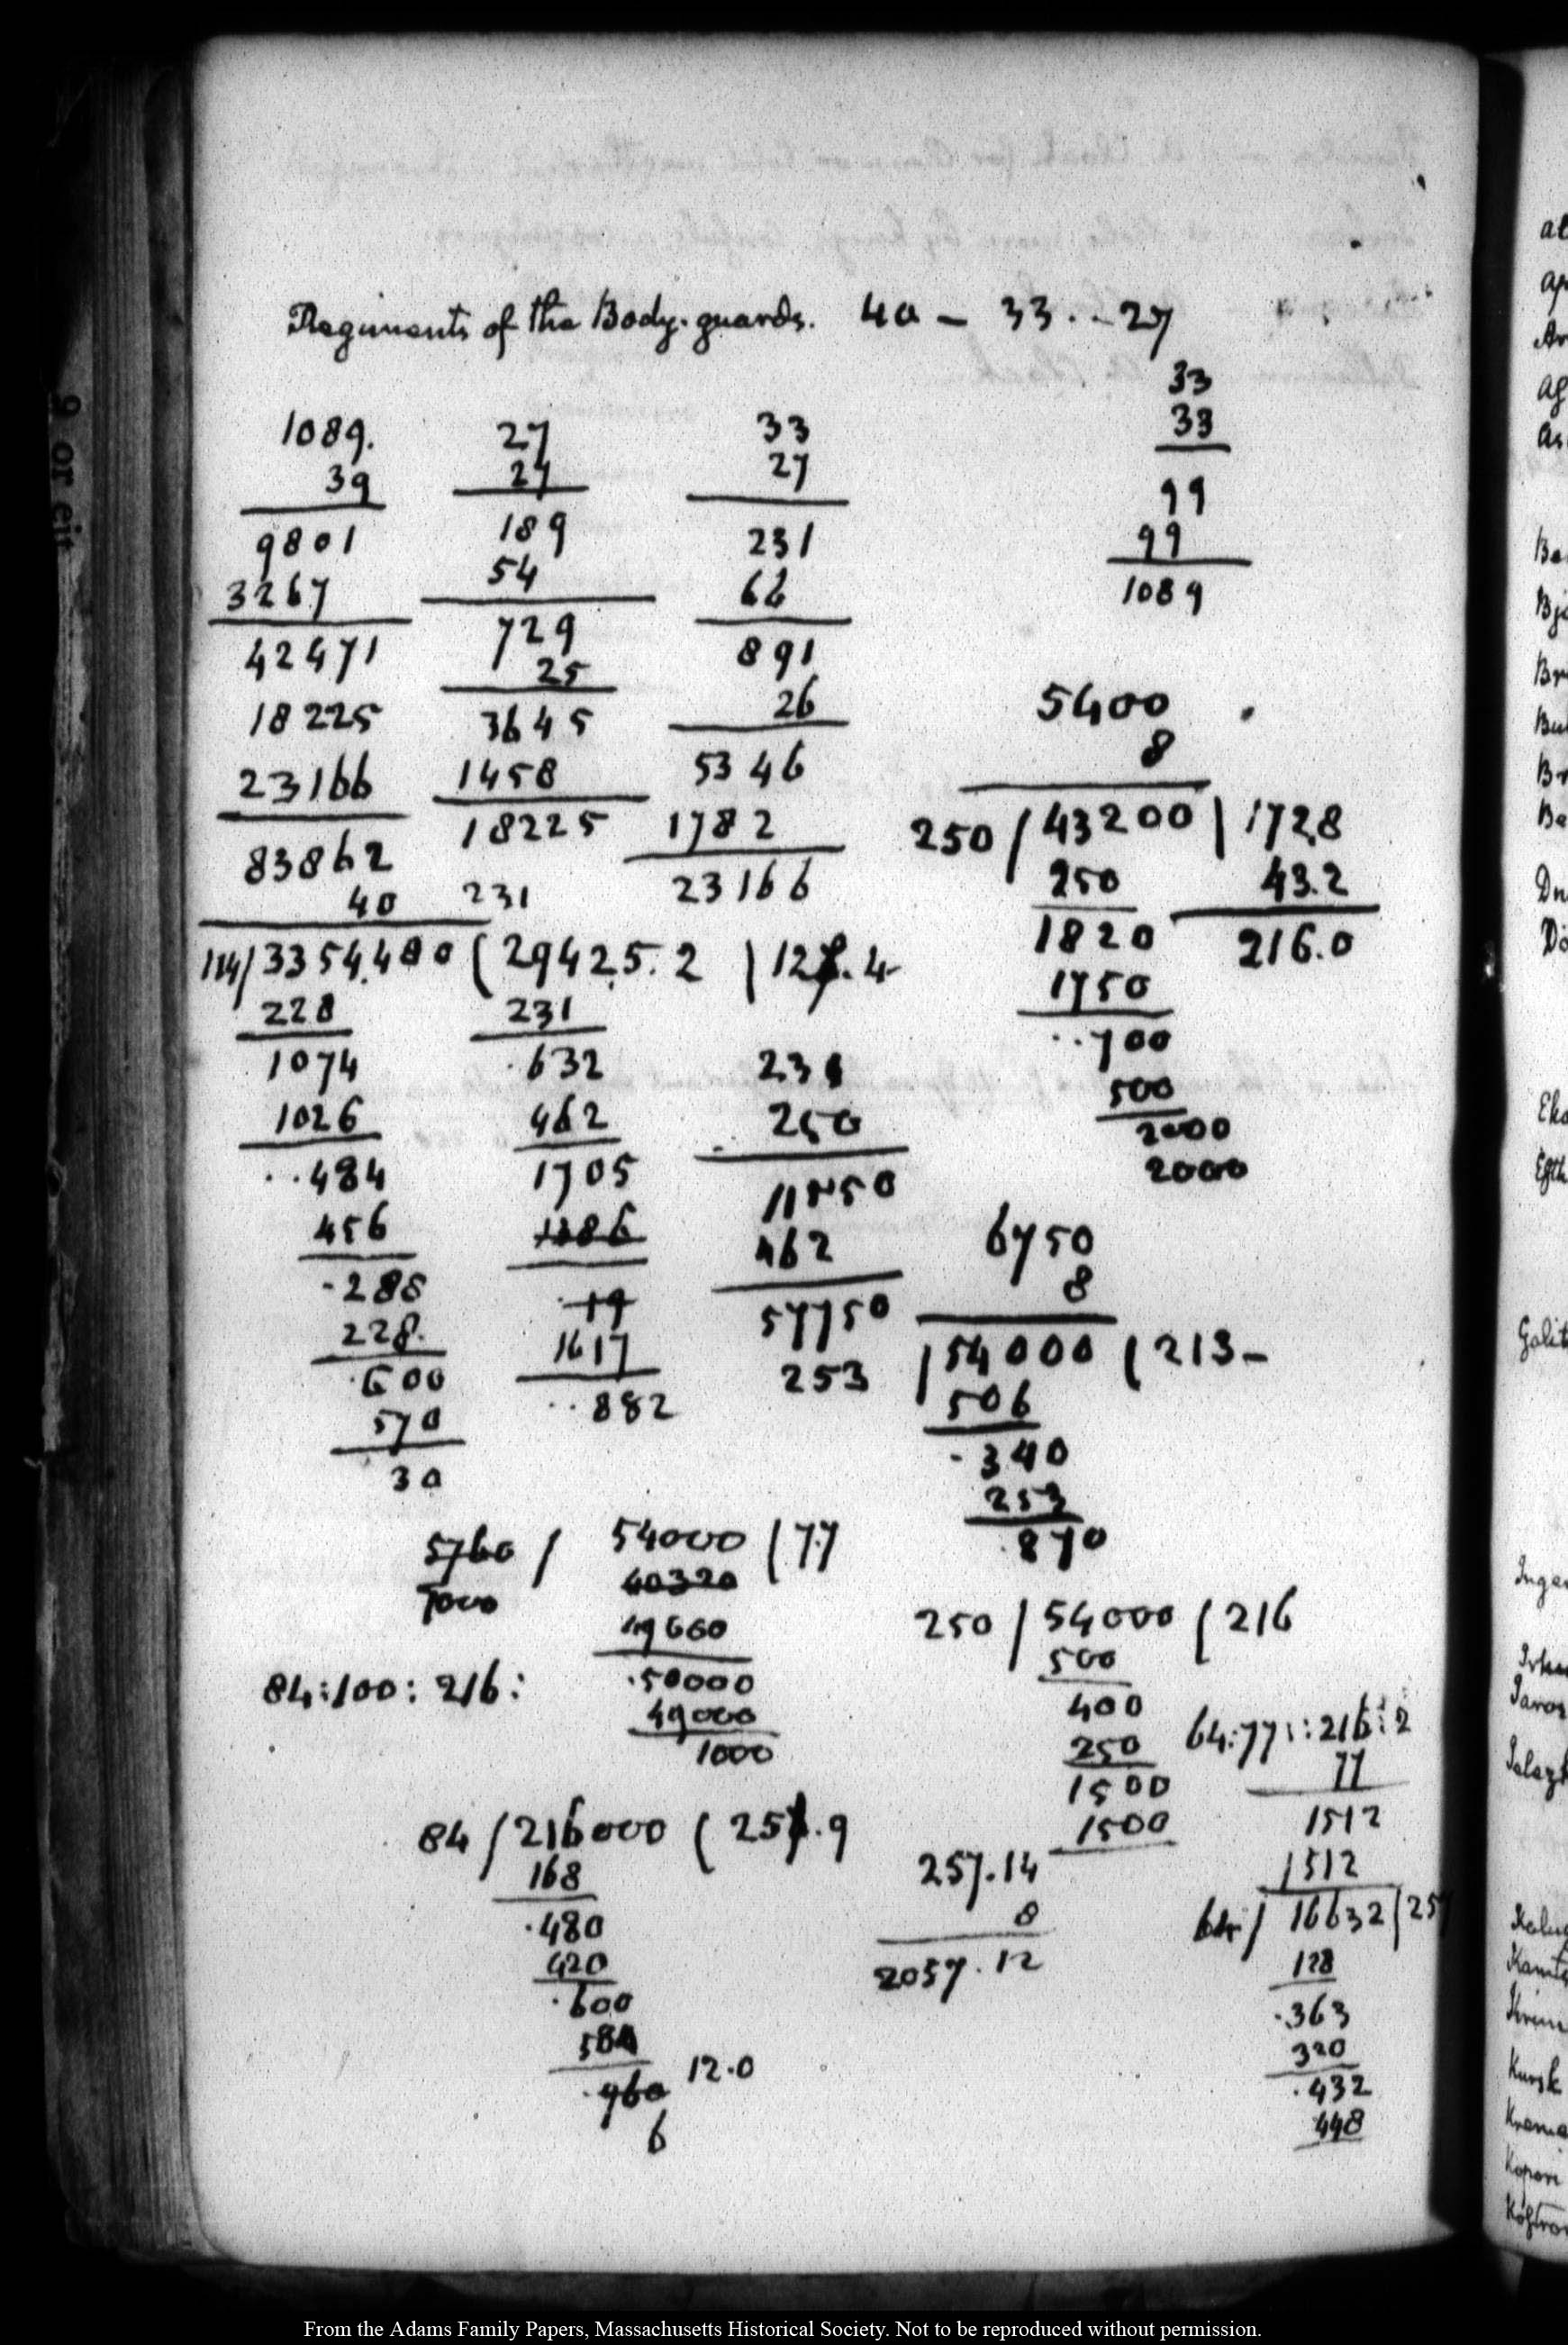 Regiments of the Body-guards. 40 – 33 . . 27
33
33
99
99
1089
1089.
39
9801
3267
42471
18225
23166
83862
40
114/3354.480 ( 29425.2 | 127.4
228
1074
1026
..484
456
.288
228.
.600
570
30
27
27
189
54
729
25
3645
1458
18225
231
231
.632
462
1705
1386
.19
1617
..882
33
27
231
66
891
26
5346
1782
23166
231
250
11550
462
57750
253
5400
8
250 / 43200 | 172.8
250
1820
1750
..700
500
2000
2000
43.2
216.0
6750
8
/54000 ( 213-
506
.340
253
.870
5760 / 54000 | 7.7
7000
40320
49660
.50000
49000
1000
84:100:216:
250 / 54000 ( 216
500
400
250
1500
1500
64:77::216:2
77
1512
1512
64/ 16632 | 257
128
.363
320
.432
448
84 / 216000 ( 257.9
168
.480
420
.600
588
.960 12.0
6
257.14
8
2057.12
9 or eit
Ba
Br
Ba
Kursk
From the Adams Family Papers, Massachusetts Historical Society. Not to be reproduced without permission.